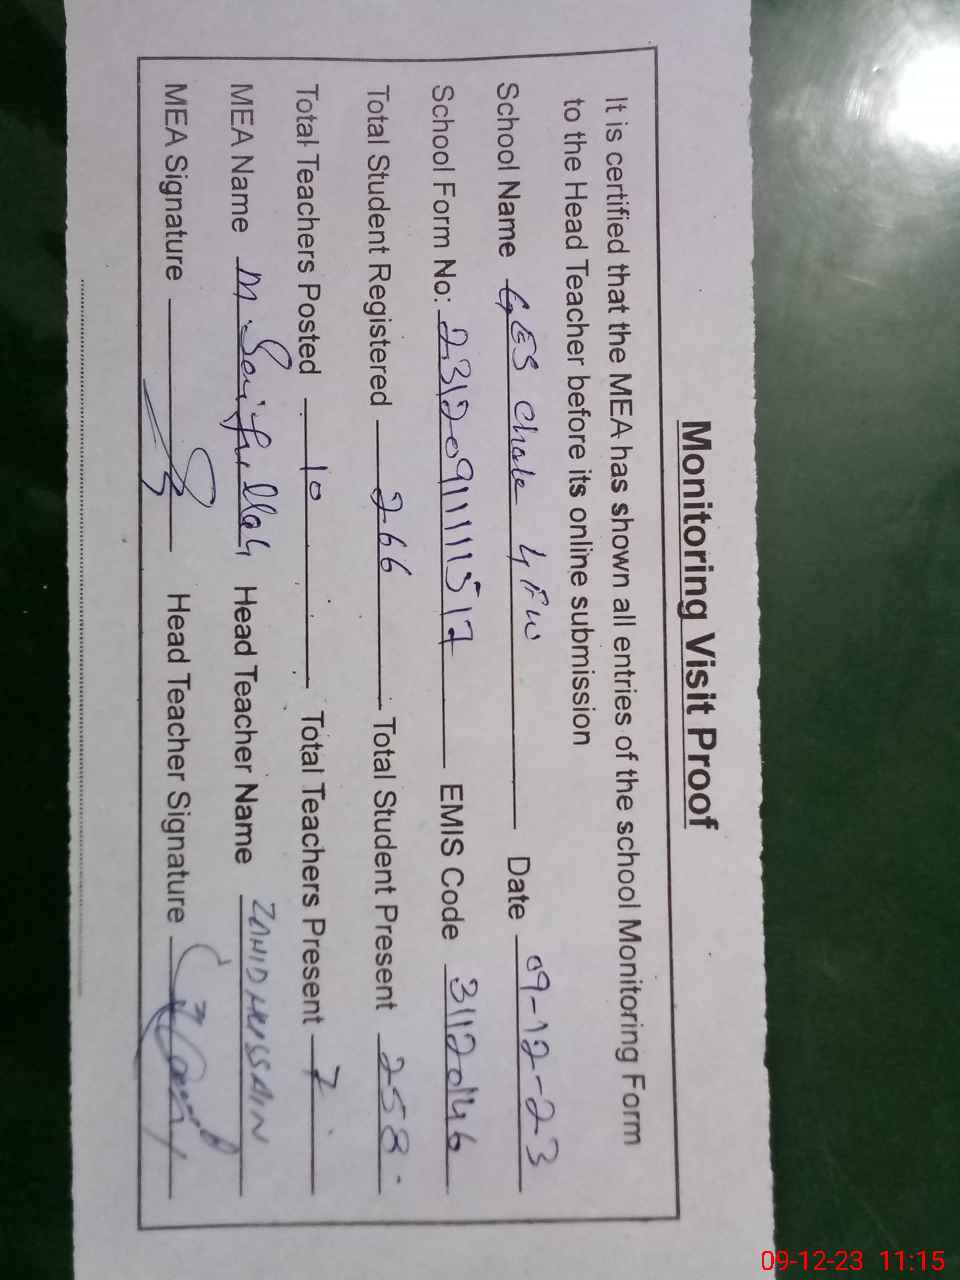 Monitoring Visit Proof
It is certified that the MEA has shown all entries of the school Monitoring Form
to the Head Teacher before its online submission
School Name GES Chak 4 FW Date 09-12-23
School Form No: EMIS Code 31120146
Total Student Registered 266 Total Student Present 258
Total Teachers Posted 10 Total Teachers Present 7
MEA Name M. Saifullah Head Teacher Name ZAHID HUSSAIN
MEA Signature Head Teacher Signature
09-12-23 11:15